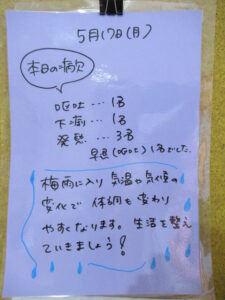 5月17日(月)
本日の病欠
嘔吐…1名
下痢…1名
発熱…3名
早退(嘔吐)1名でした。
梅雨に入り気温や気候の
変化で体調も変わり
やすくなります。生活を整え
ていきましょう!